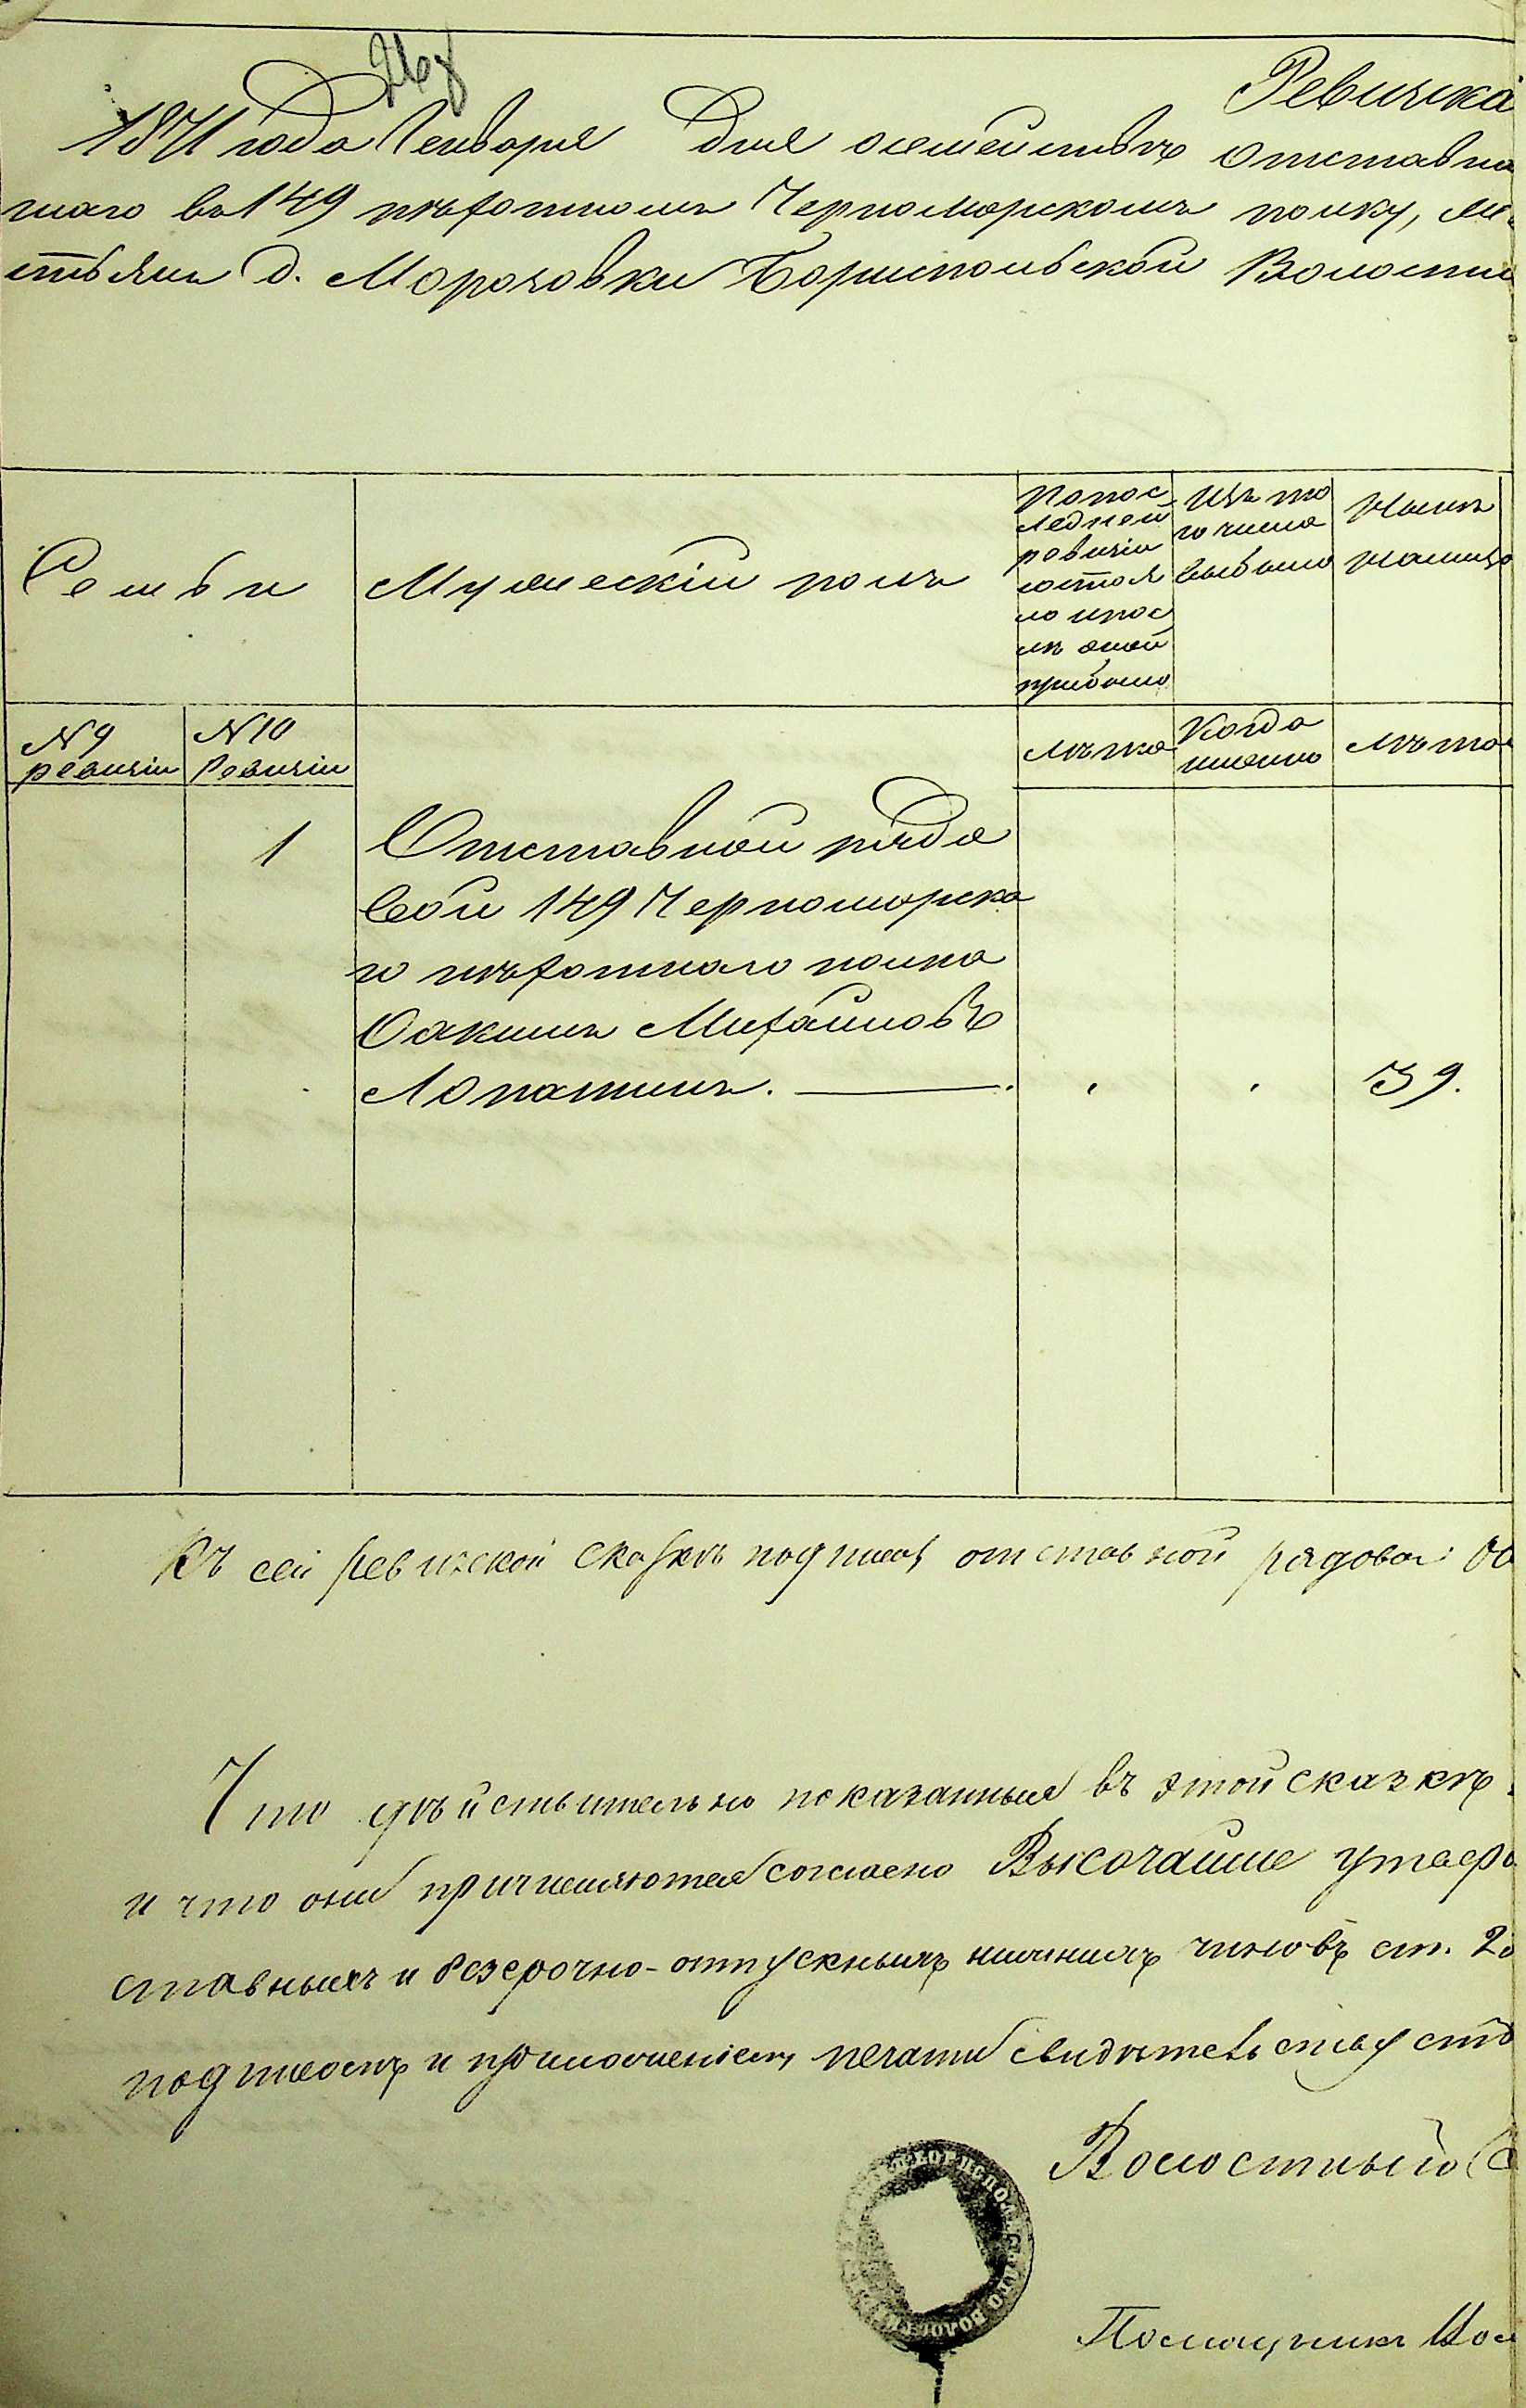 268
Ревизска
1871 года Генваря дня осемействе отставно
маго въ 149 пѣхотномъ Черноморскомъ полку,
стьянъ д. Морозовки Бориспольской Волости
Семьи
Мужескій полъ
Попос
ледней
ревизіи
состоя
ло ипос
лѣ оной
прибыло
Изъ то
го числа
выбыло
Нынѣ
налицо
№ 9
ревизіи
№ 10
Ревизіи
Лѣта
Когда
именно
Лѣта
1
Отставной рядо
вой 149 Черноморска
го пѣхотнаго полка
Оакимъ Михайловъ
Лопатинъ.
39.
Къ сей ревизской сказкѣ подписа отставной рядовой
Что дѣйствительно показанные въ этой сказкѣ
и что они причисляются согласно Высочайше утвер
ставныхъ и безсрочно-отпускныхъ нижнихъ чиновъ ст. 2
подписомъ и приложеніемъ печати свидѣтельству
Волостный С
Помощникъ